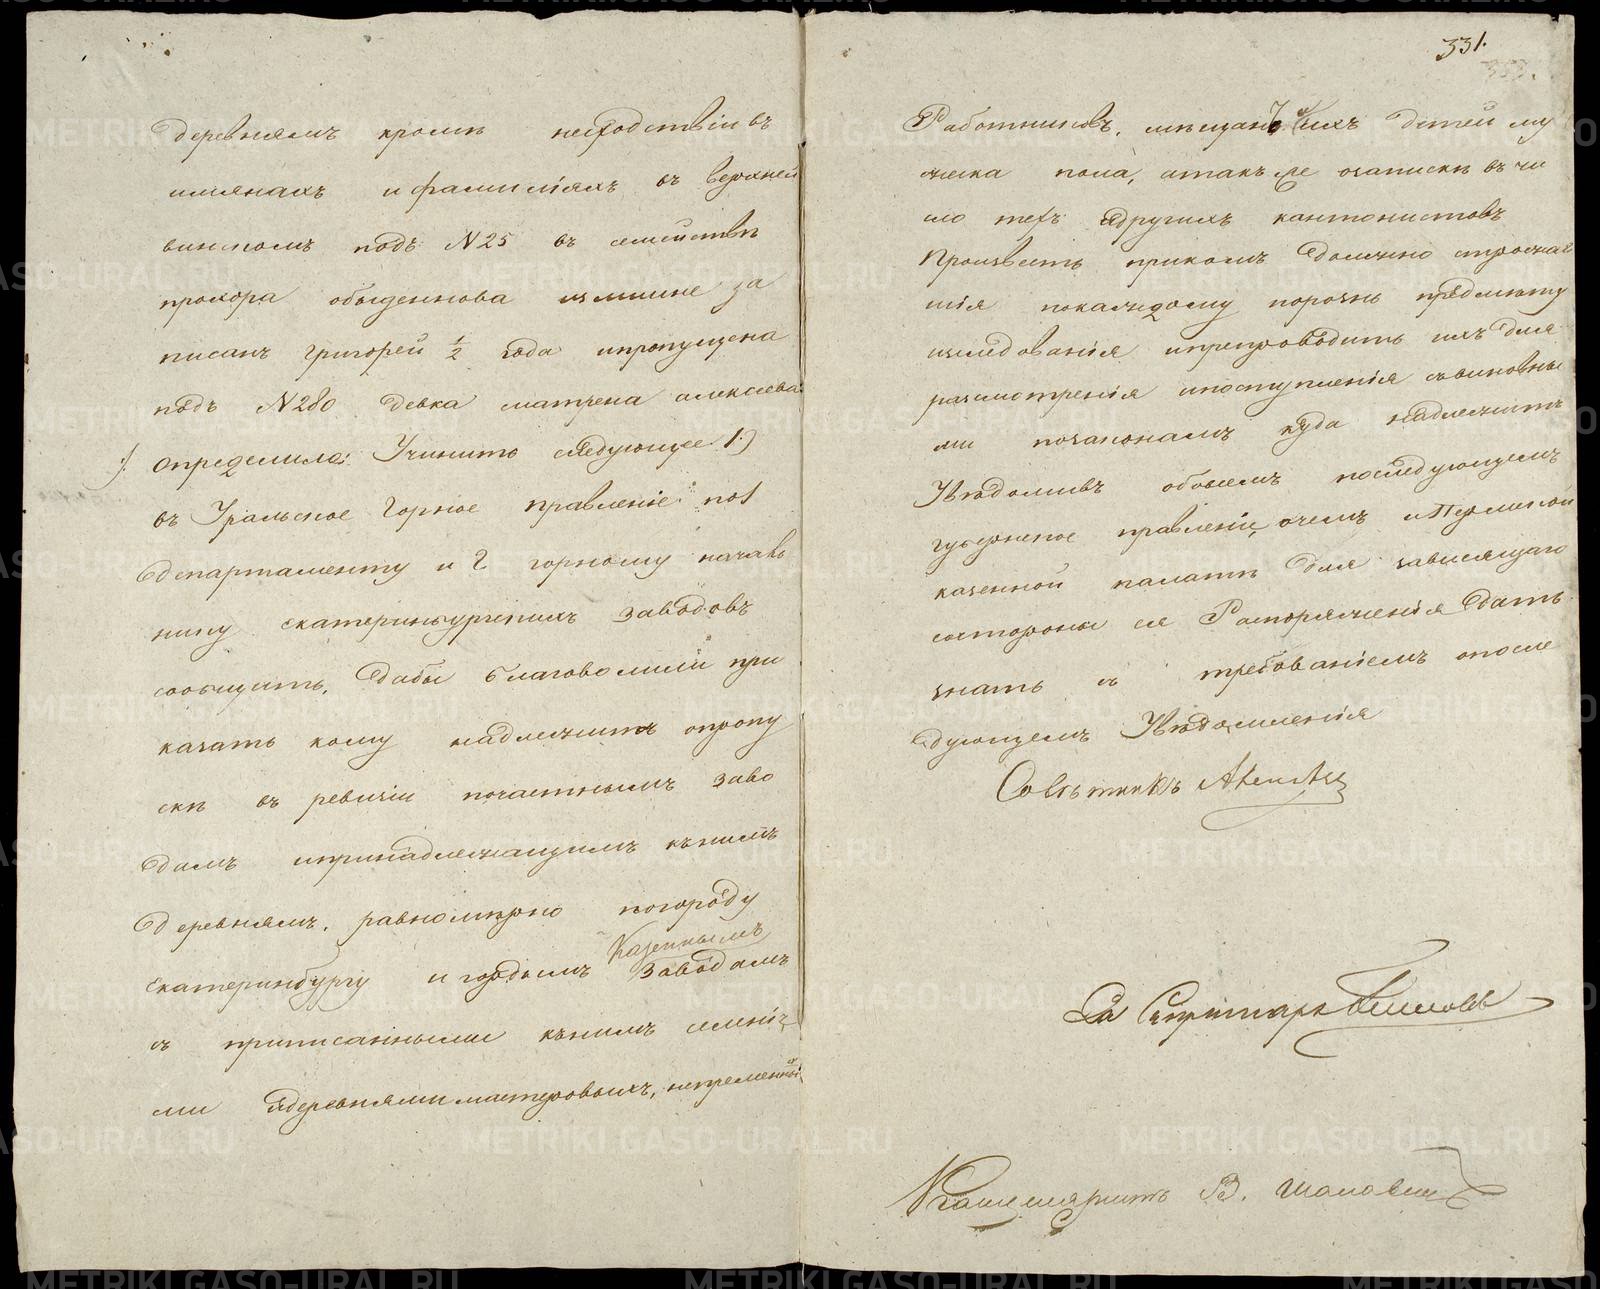 деревнямъ кроме несходствіи въ
имянахъ и фамиліяхъ въ верхней
винскомъ подъ N 25 въ семействе
прохора обыденнова излишне за
писанъ григорей ½ года ипропущена
подъ N 280 девка матрена алексеева
определило: Учинить следующее 1.)
въ Уральское Горное правленіе по 1
департаменту и Г горному началь
нику екатеринбургскихъ заводовъ
сообщить, дабы благоволили при
казать кому надлежитъ опропу
ске въ ревизіи почастнымъ заво
дамъ ипринадлежащимъ кънимъ
деревнямъ, равномерно погороду
екатеринбургу и горнымъ казеннымъ заводамъ
съ приписанными кънимъ селенія
ми идеревнями мастеровыхъ, непременныхъ
331.
Работниковъ, мещанъ ихъ детей му
жеска пола, атакъже озаписке въ чи
сло техъ идругихъ кантонистовъ
Произвесть прикомъ должно строжай
шія покаждому порознь предмету
изследованія ипрепроводить ихъ для
разсмотренія ипоступленія свиновны
ми позаконамъ куда надлежитъ
Уведомивъ обовсемъ последующемъ
губернское правленіе, очемъ иПермской
казенной палате для зависящаго
состороны ея Распоряженія дать
знать съ требованіемъ опосле
дующемъ Уведомленія
Советникъ
Секретарь
Канцеляристъ В.
METRIKI.GASO-URAL.RU